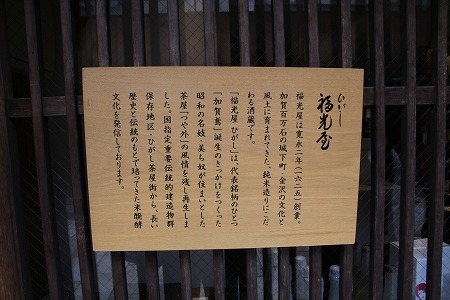 ひがし
福光屋
福光屋は寛永二年(一六二五)創業。
加賀百万石の城下町・金沢の文化と
風土に育まれてきた、純米造りにこだ
わる酒蔵です。
「福光屋 ひがし」は、代表銘柄のひとつ
「加賀鳶」誕生のきっかけをつくった
昭和の名妓・美ち奴が住まいとした
茶屋「つや外」の風情を残し再生しま
した。国指定重要伝統的建造物群
保存地区・ひがし茶屋街から、長い
歴史と伝統のもとで培ってきた米醗酵
文化を発信しております。